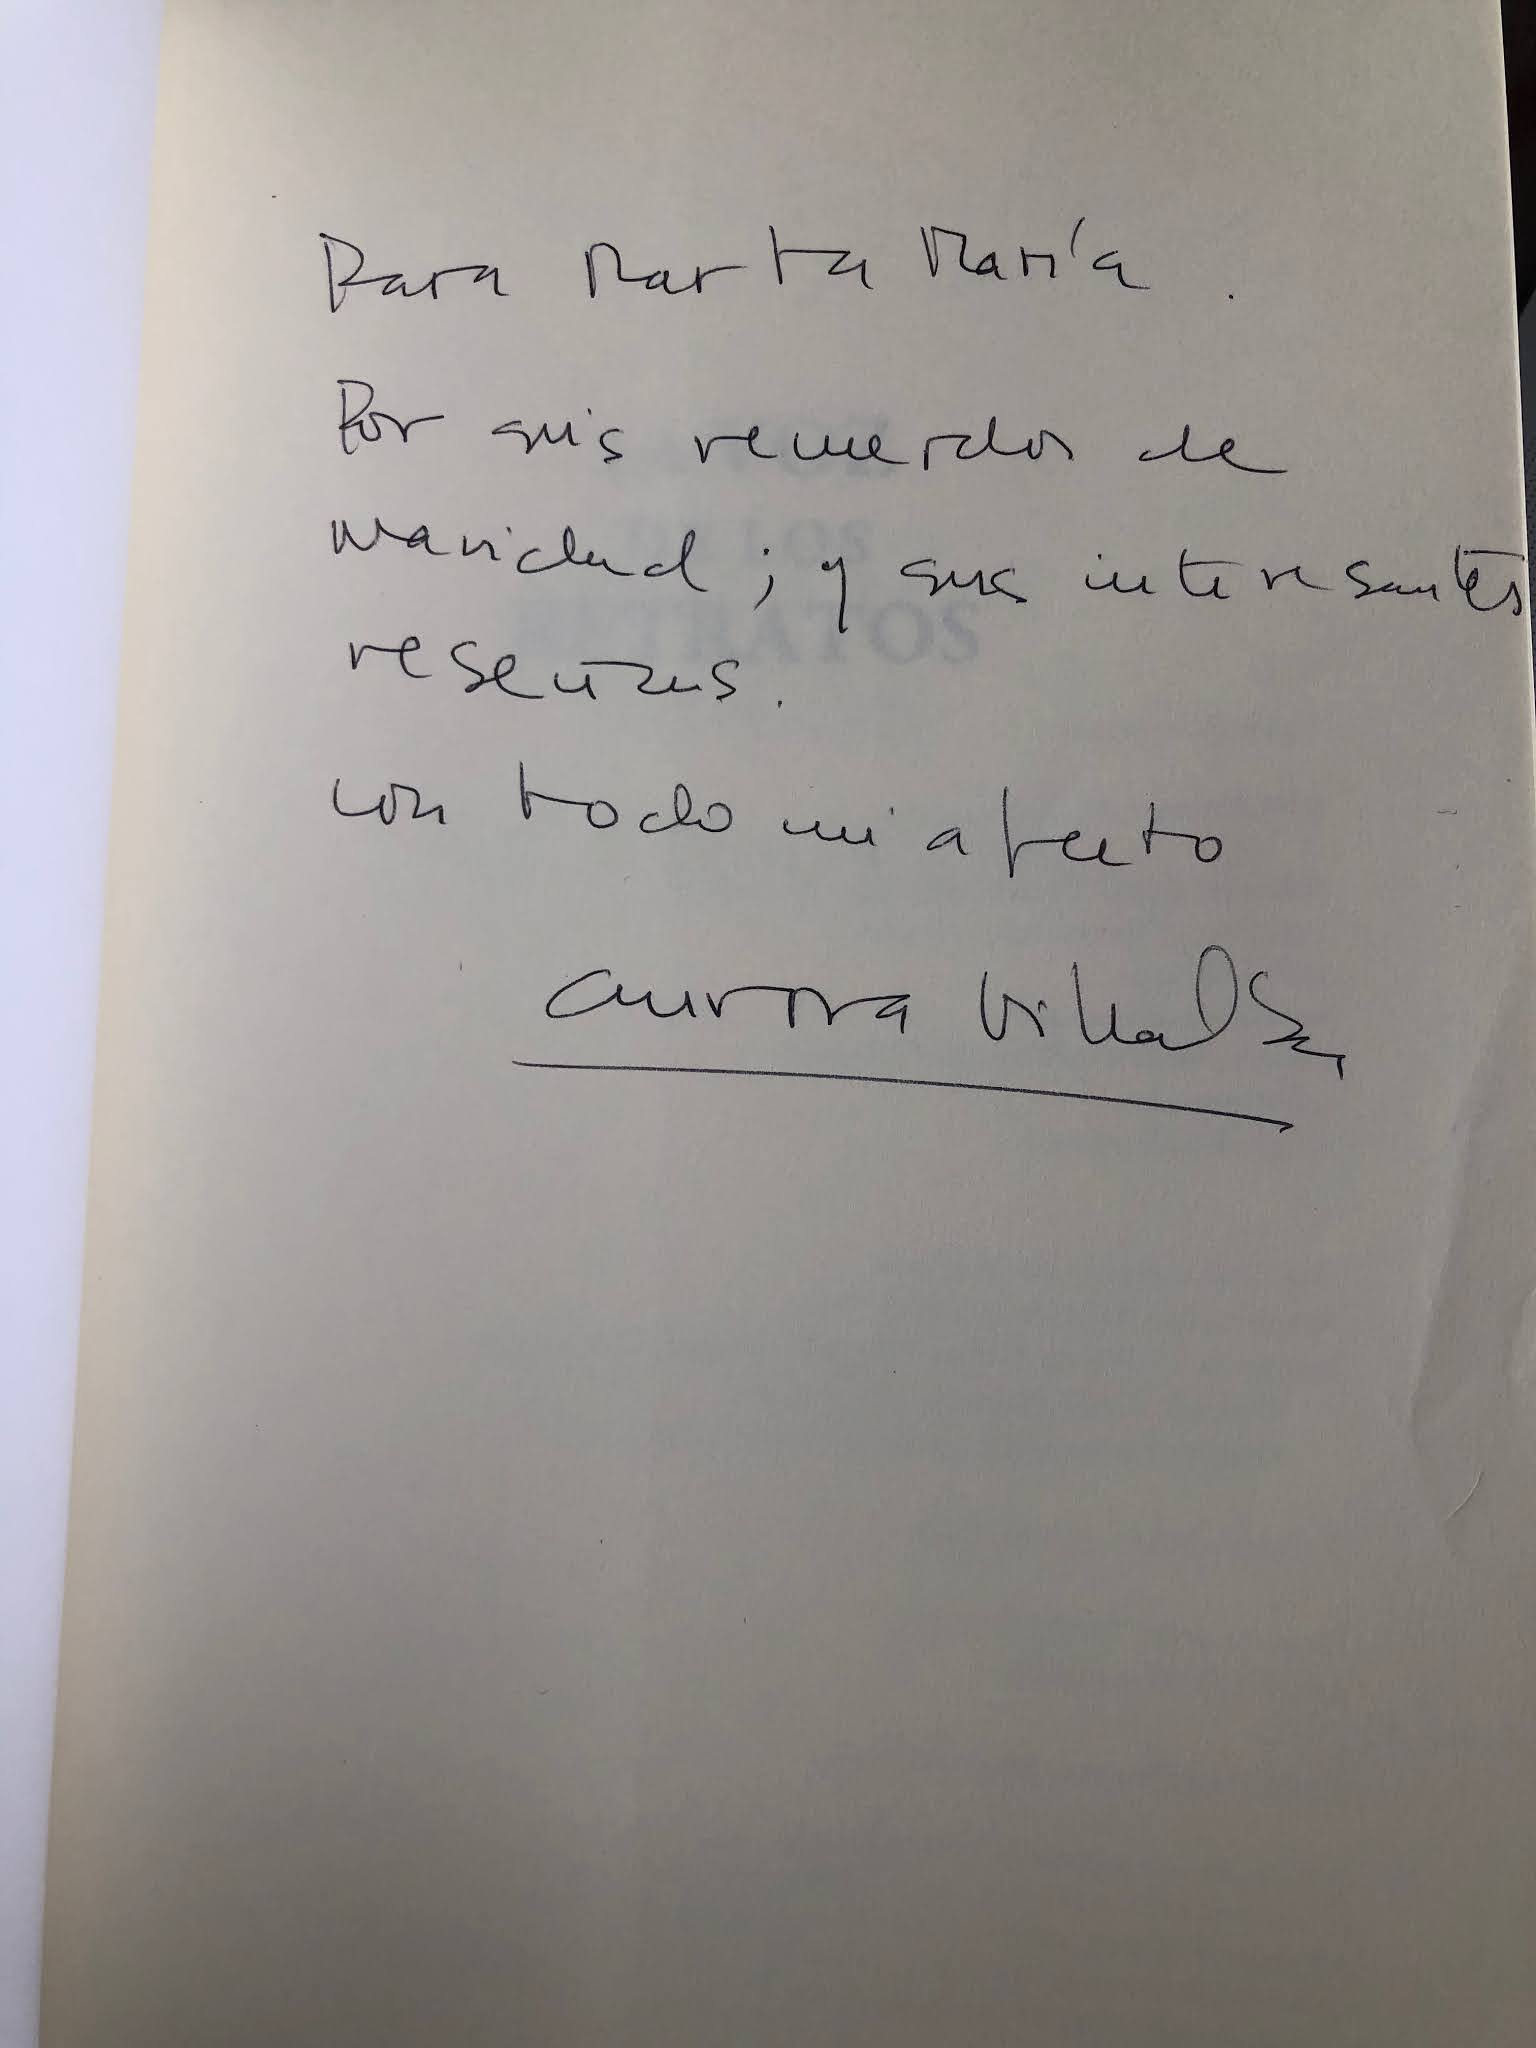 Para Marta María.
Por sus recuerdos de
navidad; y sus interesantes
reseñas.
con todo mi afecto
Aurora Villalba
DE LOS
RETRATOS